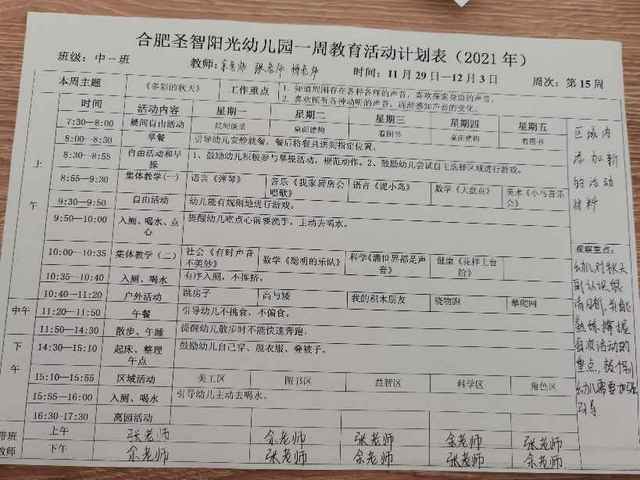 合肥圣智阳光幼儿园一周教育活动计划表（2021年）
班级：中一班 教师：余老师 张老师 杨老师 时间：11月29日—12月3日 周次：第15周
本周主题 《多彩的秋天》 工作重点 1. 知道周围存在各种各样的声音，喜欢探索身边的声音。
2. 喜欢倾听各种动听的声音，
时间 活动内容 星期一 星期二 星期三 星期四 星期五
上午
7:30—8:00 晨间自由活动 桌面建构 看图书 桌面建构 看图书
8:00—8:30 早餐 引导幼儿安静就餐，餐后将餐具送到指定位置。
8:30—8:55 自由活动和早操 1、鼓励幼儿积极参与早操活动，规范动作。2、鼓励幼儿尝试自主选择区域进行游戏。
8:55—9:30 集体教学（一） 语言《弹琴》 音乐《我家厨房会唱歌》 语言《泥小鸟》 数学《大盘点》 美术《小鸟音乐会》
9:30—9:50 自由活动 幼儿能有规则地进行游戏。
9:50—10:00 入厕、喝水、点心 提醒幼儿吃点心前要洗手，主动去喝水。
10:00—10:35 集体教学（二） 社会《有时声音不美妙》 数学《聪明的乐队》 科学《满世界都是声音》 健康《花样上台阶》
10:35—10:40 入厕、喝水 有序入厕，不推挤。
10:40—11:20 户外活动 跳房子 高与矮 我的积木朋友 攀爬网
中午
11:20—11:50 午餐 引导幼儿不挑食，不偏食。
11:50—14:30 散步、午睡 提醒幼儿散步时不能快速奔跑。
下午
14:30—15:10 起床、整理午点 鼓励幼儿自己穿、脱衣服、叠被子。
15:10—15:55 区域活动 美工区 图书区 益智区 科学区 角色区
15:55—16:00 入厕、喝水 引导幼儿主动去喝水。
16:30-17:30 离园活动
带班教师 上午 张老师 余老师 张老师 余老师 张老师
下午 余老师 张老师 余老师 张老师 余老师
区域内
添加新
的活动
材料
观察重点：
幼儿对秋天